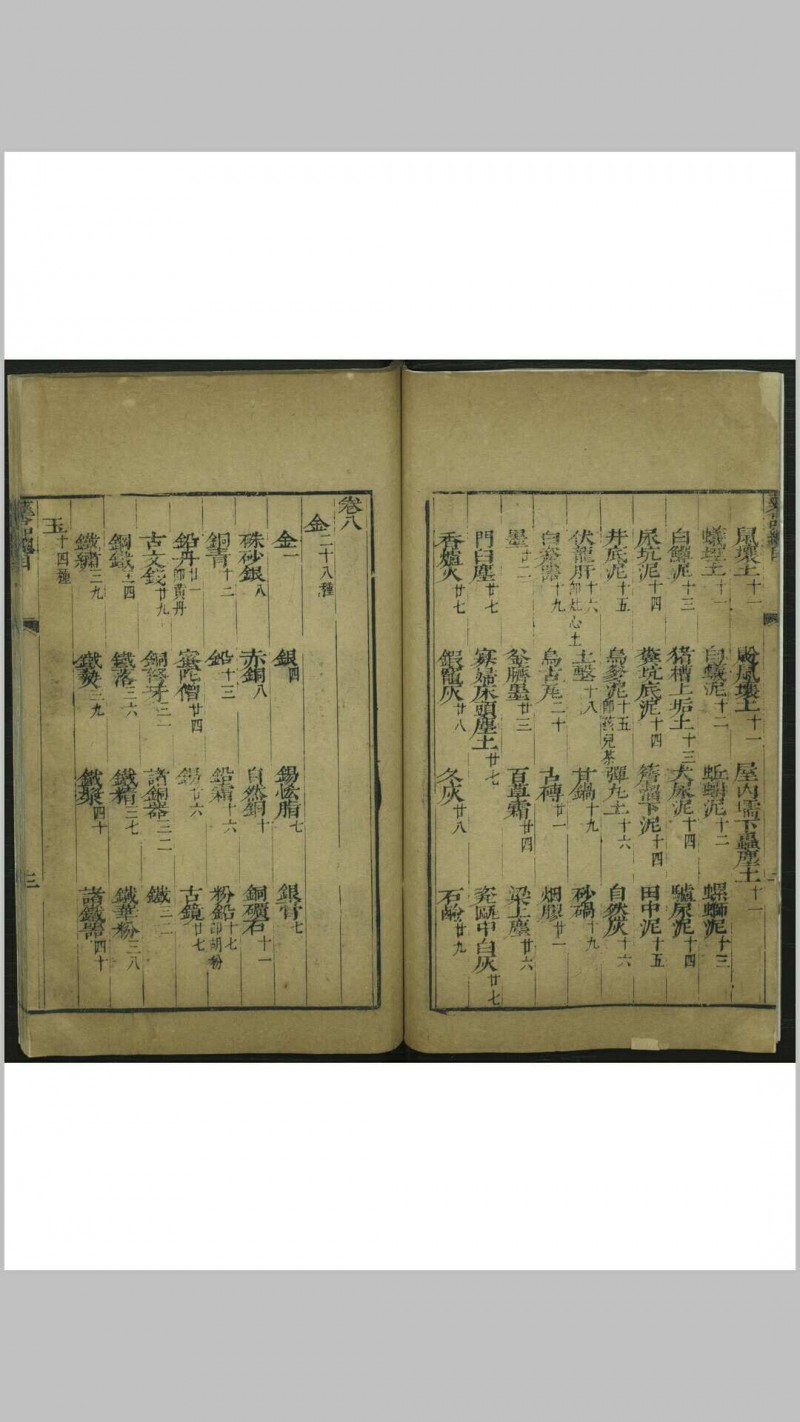 鼠壤土十一 鼢鼠壤土十一 屋內壖下蟲塵土十一
蟻垤土十一 白蟻泥十二 蚯蚓泥十二 螺螄泥十三
白鱓泥十三 豬槽上垢土十三 犬尿泥十四 驢尿泥十四
尿坑泥十四 糞坑底泥十四 簷溜下泥十四 田中泥十五
井底泥十五 烏爹泥十五即孩兒茶 彈丸土十六 自然灰十六
伏龍肝十六即灶心土 土墼十八 甘鍋十九 砂鍋十九
白瓷器十九 烏古瓦二十 古磚廿一 烟膠廿一
墨廿二 釜臍墨廿三 百草霜廿四 梁上塵廿六
門臼塵廿七 寡婦床頭塵土廿七 瓷甌中白灰廿七
香爐灰廿七 鍛竈灰廿八 冬灰廿八 石鹼廿九
卷八
金二十八種
金一 銀四 錫恡脂七 銀膏七
硃砂銀八 赤銅八 自然銅十 銅礦石十一
銅青十二 鉛十三 鉛霜十六 粉錫十七即胡粉
鉛丹廿一即黃丹 蜜陀僧廿四 錫廿六 古鏡廿七
古文錢廿九 銅弩牙三一 諸銅器三二 鐵三二
鋼鐵三四 鐵落三六 鐵精三七 鐵華粉三八
鐵鏽三九 鐵爇三九 鐵漿四十 諸鐵器四十
玉十四種
三